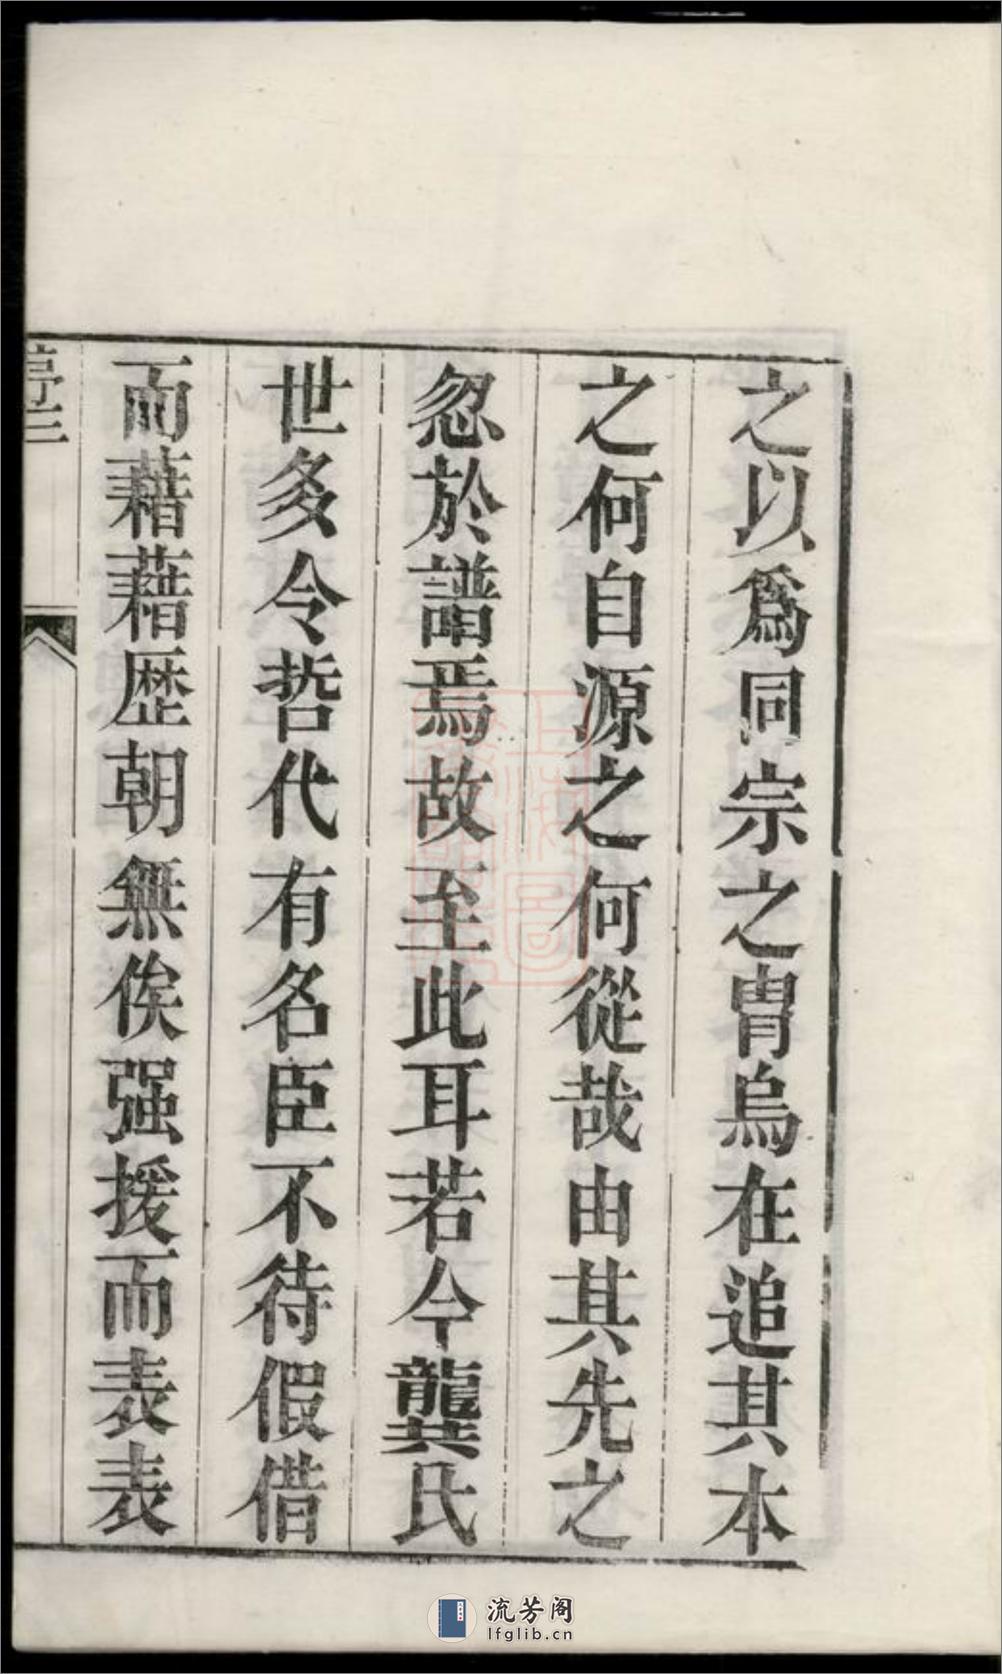 之以為同宗之胄烏在追其本
之何自源之何從哉由其先之
忽於譜焉故至此耳若今龔氏
世多令哲代有名臣不待假借
而藉藉歴朝無俟强援而表表
流芳阁
lfglib.cn